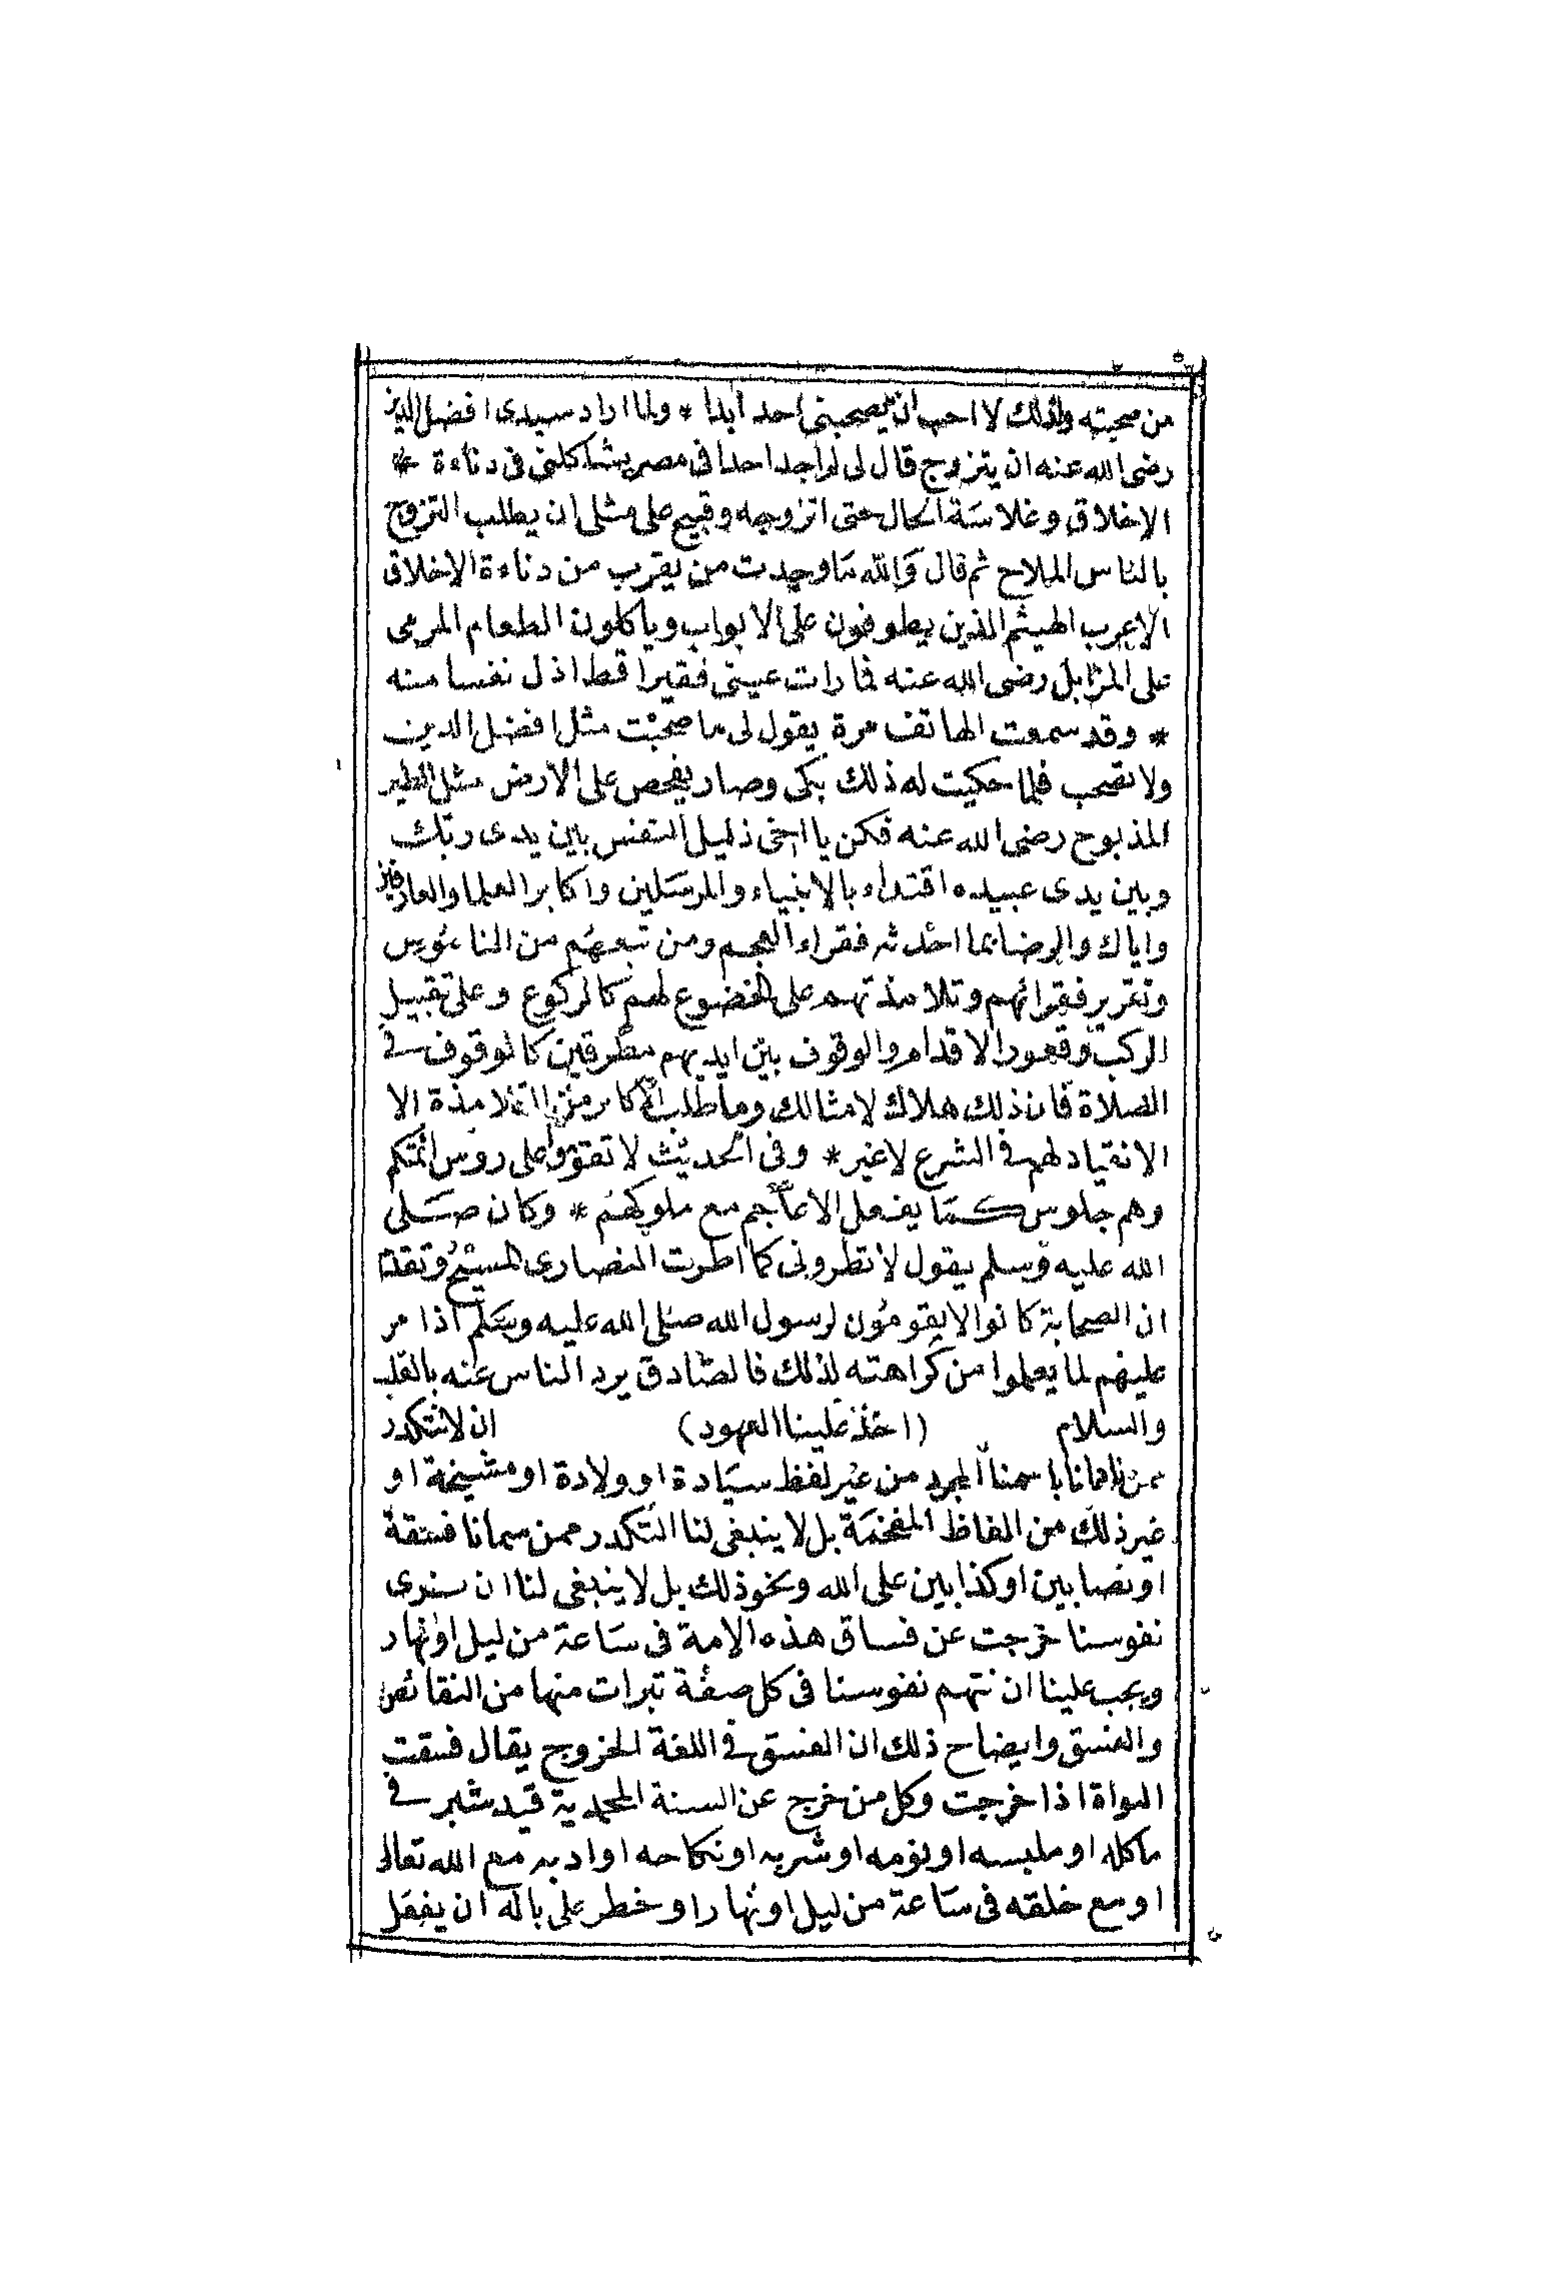 من صحبته ولذلك لا احب ان يصحبنى احد ابدا * ولما اراد سيدى افضل الدين
رضى الله عنه ان يتزوج قال لى لم اجد احدا فى مصر يشاكلنى فى دناءة *
الاخلاق وغلاسة الحال حتى اتزوجه وقبيح على مثلى ان يطلب التزوج
بالناس الملاح ثم قال والله ما وجدت من يقرب من دناءة الاخلاق
الاعرب الهيثم الذين يطوفون على الابواب وياكلون الطعام المرمى
على المزابل رضى الله عنه فما رات عينى فقيرا قط اذل نفسا منه
* وقد سمعت الهاتف مرة يقول لى ما صحبت مثل افضل الدين
ولا تصحب فلما حكيت له ذلك بكى وصار يفحص على الارض مثل الطير
المذبوح رضى الله عنه فكن يا اخى ذليل النفس بين يدى ربك
وبين يدى عبيده اقتداء بالانبياء والمرسلين واكابر العلما والعارفين
واياك والرضا بما احدثه فقراء العجم ومن تبعهم من الناموس
وتقرير فقرائهم وتلامذتهم على الخضوع لهم كالركوع وعلى تقبيل
الركب وقعود الاقدام والوقوف بين ايديهم مطرقين كالوقوف فى
الصلاة فان ذلك هلاك لامثالك وما طلب الاكابر من التلامذة الا
الانقياد لهم فى الشرع لا غير * وفى الحديث لا تقفوا على روس ائمتكم
وهم جلوس كما يفعل الاعاجم مع ملوكهم * وكان صلى
الله عليه وسلم يقول لا تطرونى كما اطرت النصارى المسيح وتقدم
ان الصحابة كانوا لا يقومون لرسول الله صلى الله عليه وسلم اذا مر
عليهم لما يعلموا من كراهته لذلك فالصادق يرد الناس عنه بالقلب
والسلام (اخذ علينا العهود) ان لا نتكدر
ممن نادانا باسمنا المجرد من غير لفظ سيادة او ولادة او مشيخة او
غير ذلك من الفاظ المفخمة بل لا ينبغى لنا التكدر ممن سمانا فسقة
او نصابين او كذابين على الله ونحو ذلك بل لا ينبغى لنا ان نرى
نفوسنا خرجت عن فساق هذه الامة فى ساعة من ليل او نهار
ويجب علينا ان نتهم نفوسنا فى كل صفة تبرات منها من النقائص
والفسق وايضاح ذلك ان الفسق فى اللغة الخروج يقال فسقت
النواة اذا خرجت وكل من خرج عن السنة المحمدية قيد شبر فى
ماكله او ملبسه او نومه او شربه او نكاحه او ادبه مع الله تعالى
او مع خلقه فى ساعة من ليل او نهار او خطر على باله ان يفعل